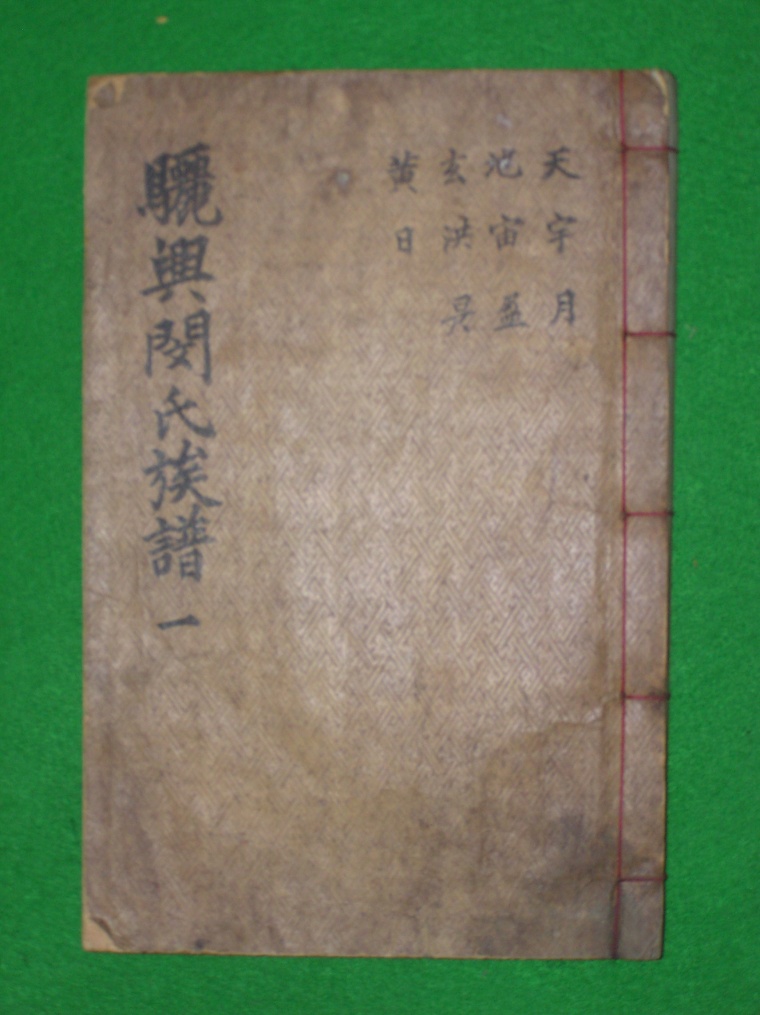 天宇月
地宙盈
玄洪昃
黃日
驪興閔氏族譜 一